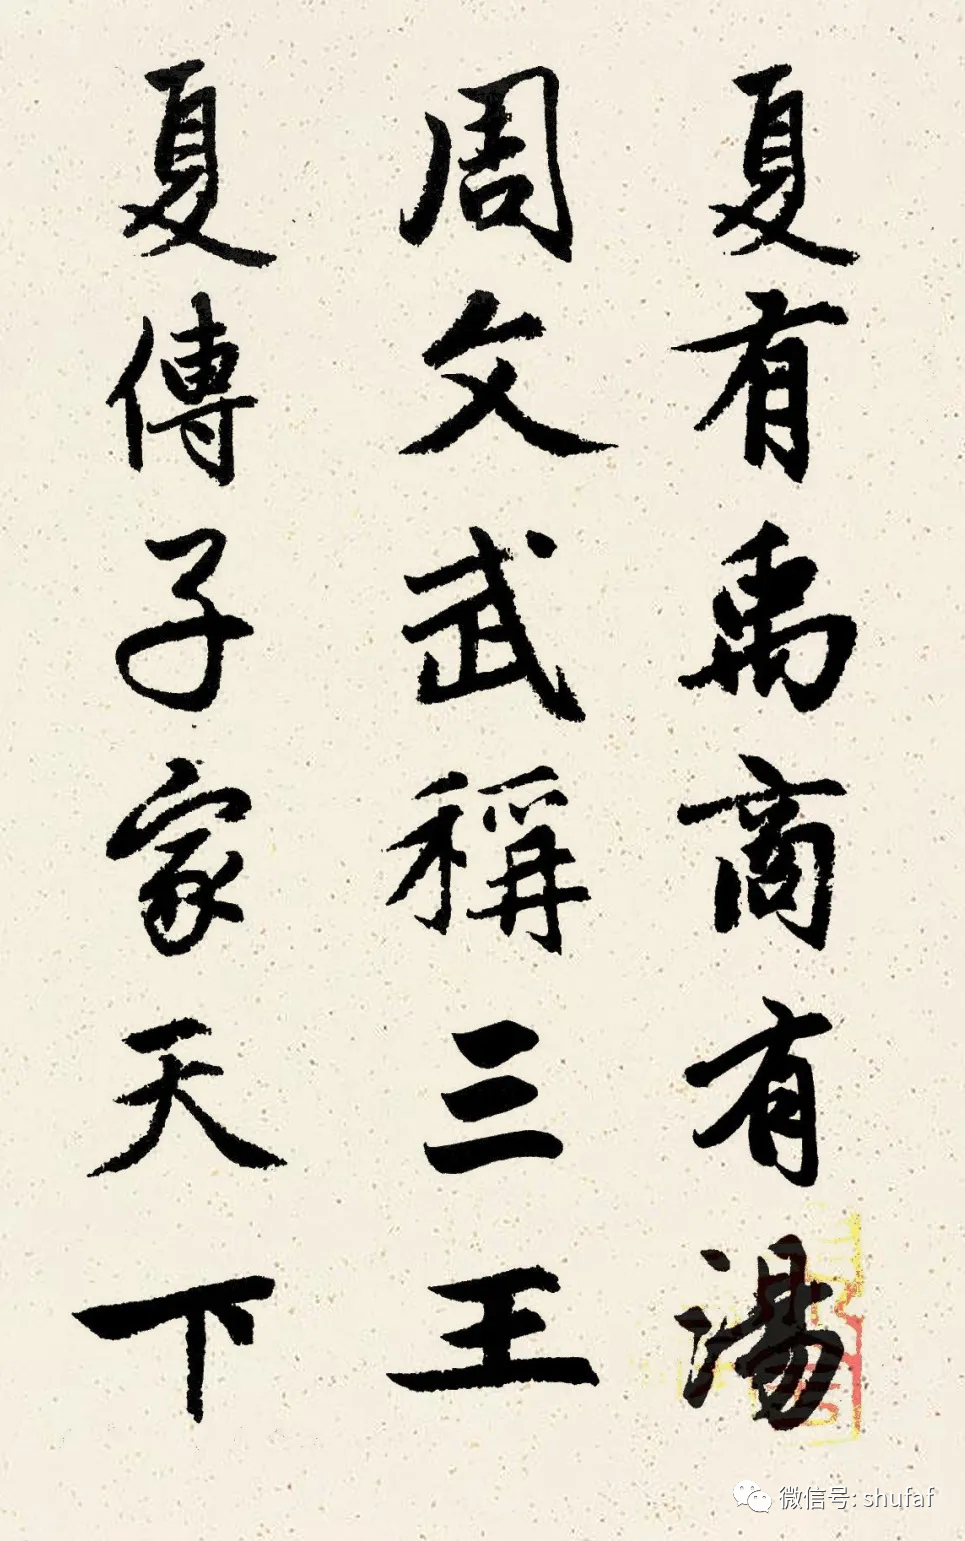 夏有禹商有湯
周文武稱三王
夏傳子家天下
微信号: shufaf